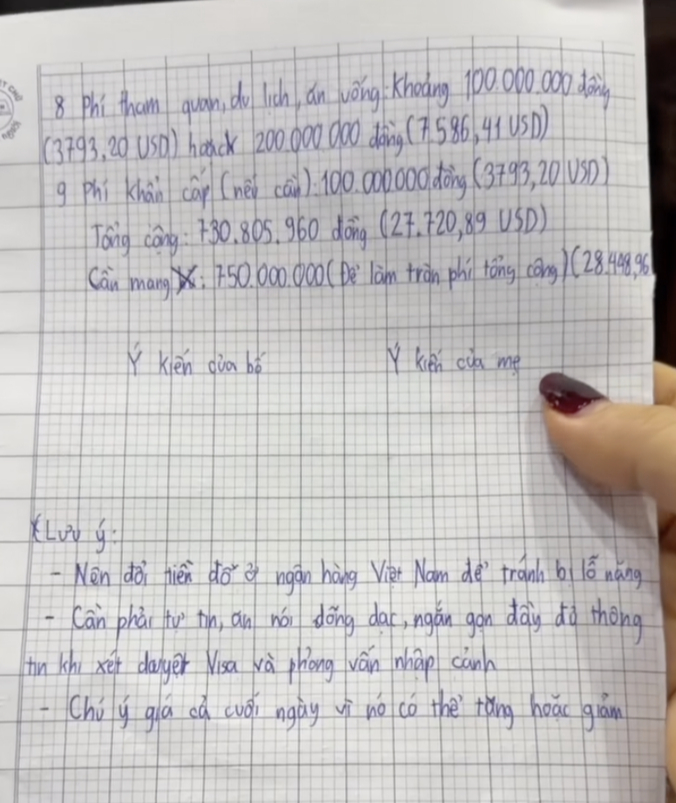 8 Phí tham quan, du lịch, ăn uống: Khoảng 100.000.000 đồng
(3793,20 USD) hoặck 200.000.000 đồng (7.586,41 USD)
9 Phí khẩn cấp (nếu cần): 100.000.000 đồng (3793,20 USD)
Tổng cộng: 730.805.960 đồng (27.720,89 USD)
Cần mang : 750.000.000 (Để làm tròn phí tổng cộng) (28.448,96
Ý kiến của bố Ý kiến của mẹ
* Lưu ý:
- Nên đổi tiền đô ở ngân hàng Việt Nam để tránh bị lỗ nặng
- Cần phải tự tin, ăn nói dõng dạc, ngắn gọn đầy đủ thông
tin khi xét duyệt Visa và phỏng vấn nhập cảnh
- Chú ý giá cả cuối ngày vì nó có thể tăng hoặc giảm